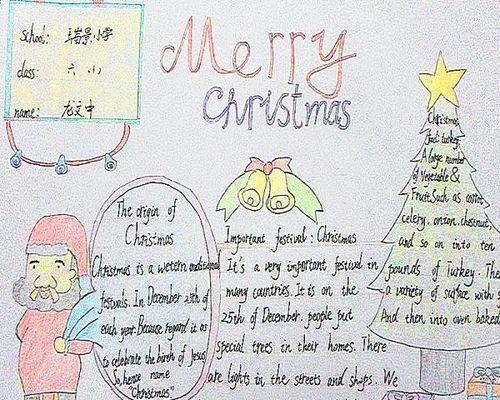 school: 瑞景小学
class: 六 (1)
name: 龙文中
Merry
Christmas
The origin of
Christmas
Christmas is a western traditional
festivals. In December 25th of
each year. Because regard it as
to celebrate the birth of Jesus
So, hence name
"Christmas"
Important festival: Christmas
It's a very important festival in
many countries. It is on the
25th of December. people put
special trees in their homes. There
are lights in the streets and shops. We
Christmas
food: turkey.
A large number
of Vegetable &
Fruit. Such as carrot,
celery, onion, chestnut,
and so on into ten
pounds of Turkey. The
a variety of surface with s
And then into oven baked